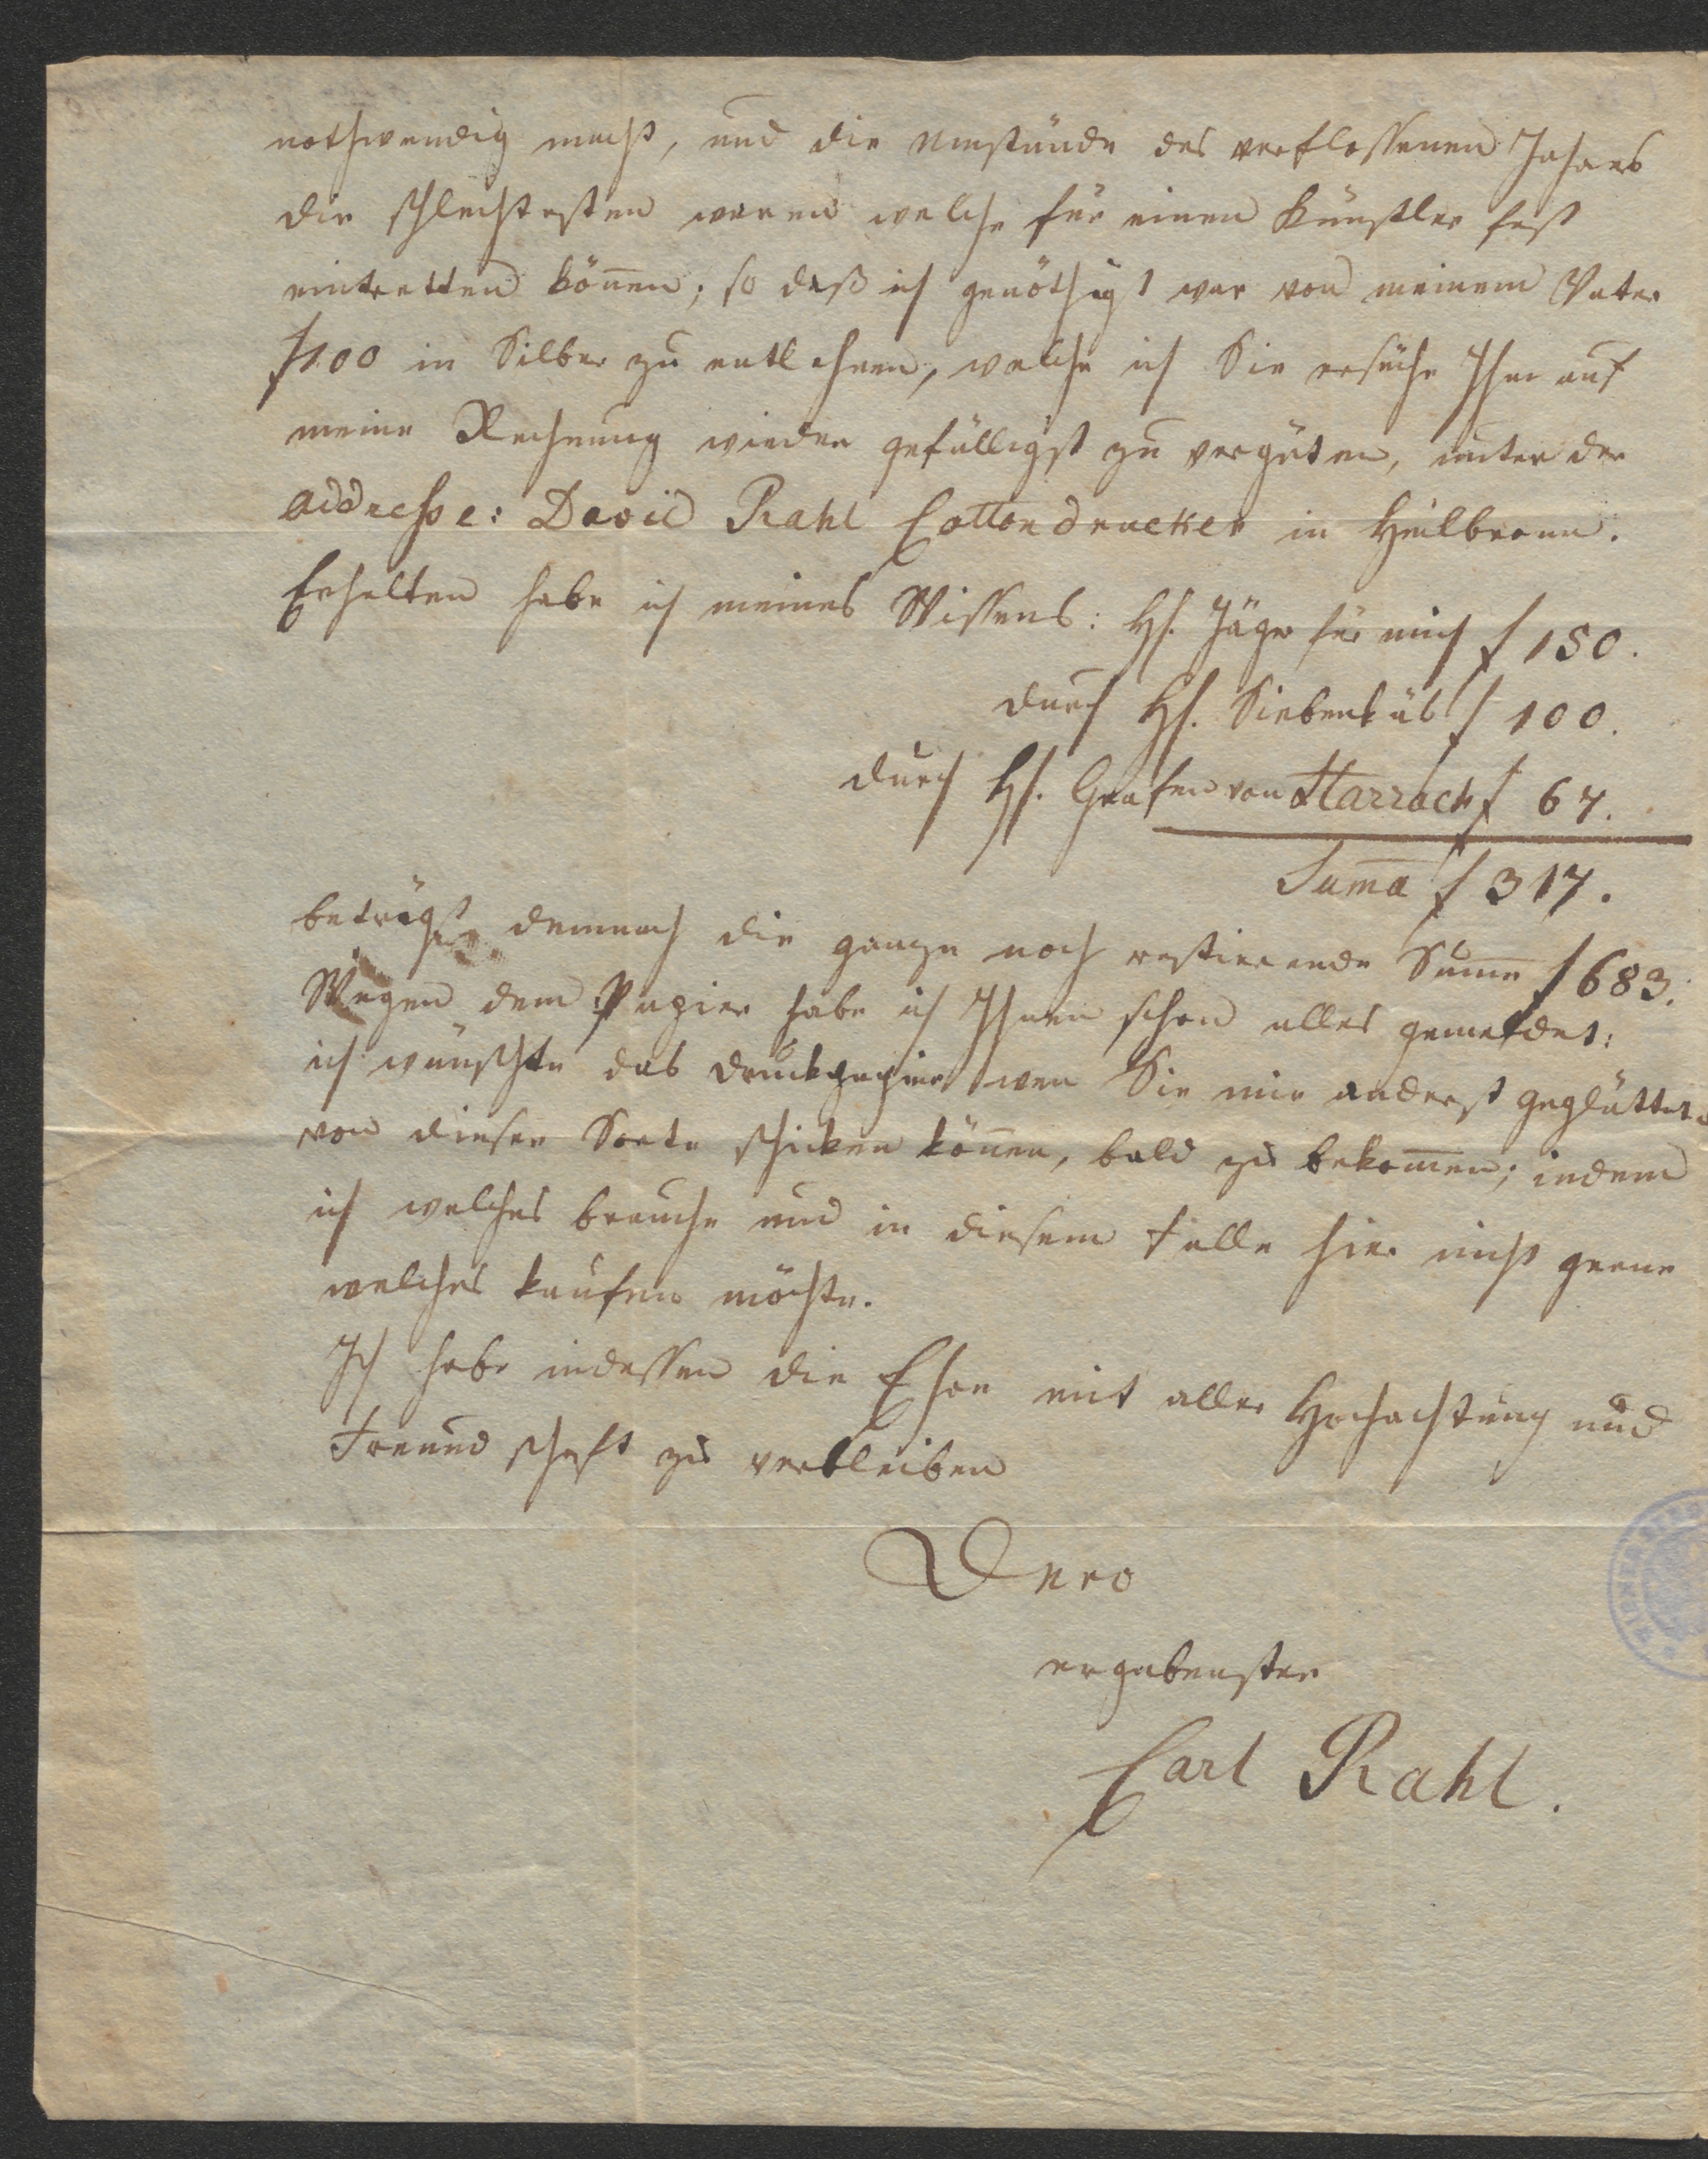 nothwendig macht, und die Umstände des verflossenen Jahres
die schlechtesten waren welche für einen Künstler fast
eintretten könen; so daß ich genöthigt war von meinem Vater
f 100 in Silber zu entlehnen, welche ich Sie ersuche Ihm auf
meine Rechnung wieder gefälligst zu vergüten, unter der
addresse: David Rahl Cottondrucker in Heilbronn.
Erhalten habe ich meines Wissens: H. Jäger für mich f 150.
durch H. Siebenkäs f 100.
durch H. Grafen von Harrach f 67.
Suma f 317.
beträgt demnach die ganze noch restierende Sume f 683.
Wegen dem Papier habe ich Ihnen schon alles gemeldet:
ich wünschte das Druckpapier wen Sie mir anderst geglättet
von dieser Sorte schicken könen, bald zu bekomen; indem
ich welches brauche und in diesem Falle hier nicht gerne
welches kaufen möchte.
Ich habe indessen die Ehre mit aller Hochachtung und
Freundschaft zu verbleiben
Dero
ergebenster
Carl Rahl.
WIENER